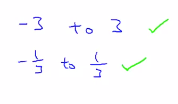 -3 to 3 ✓
-1/3 to 1/3 ✓